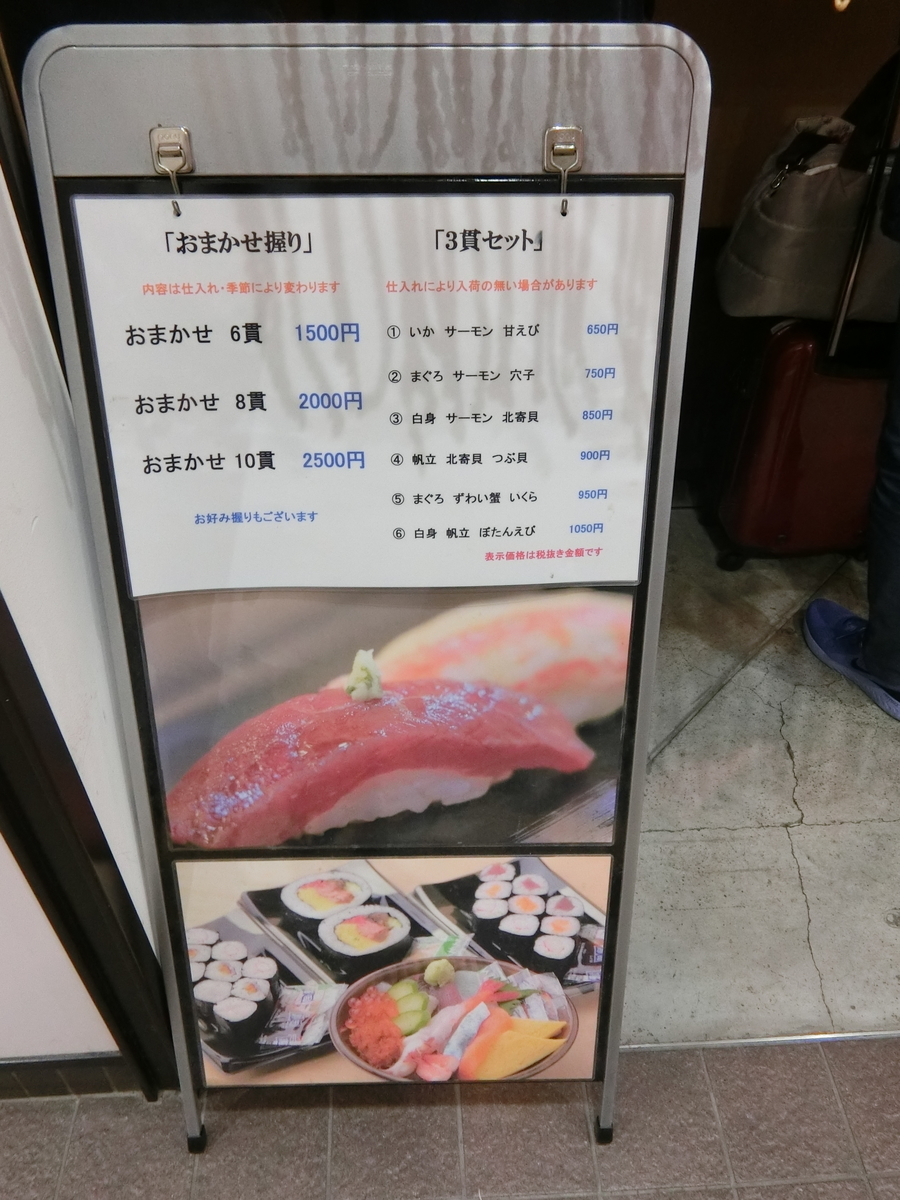 「おまかせ握り」
内容は仕入れ・季節により変わります
おまかせ 6貫 1500円
おまかせ 8貫 2000円
おまかせ 10貫 2500円
お好み握りもございます
「3貫セット」
仕入れにより入荷の無い場合があります
① いか サーモン 甘えび 650円
② まぐろ サーモン 穴子 750円
③ 白身 サーモン 北寄貝 850円
④ 帆立 北寄貝 つぶ貝 900円
⑤ まぐろ ずわい蟹 いくら 950円
⑥ 白身 帆立 ぼたんえび 1050円
表示価格は税抜き金額です